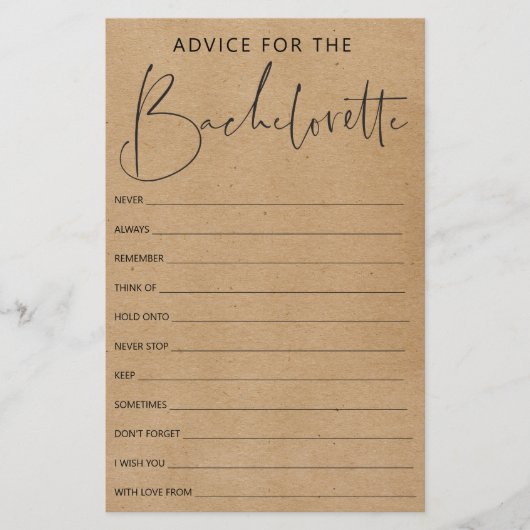 ADVICE FOR THE
Bachelorette
NEVER
ALWAYS
REMEMBER
THINK OF
HOLD ONTO
NEVER STOP
KEEP
SOMETIMES
DON'T FORGET
I WISH YOU
WITH LOVE FROM